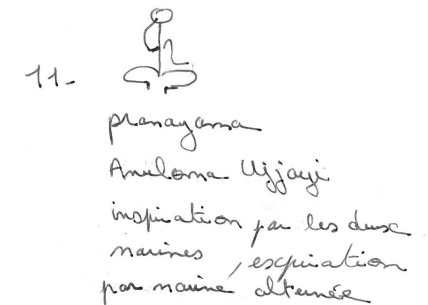 11-
pranayama
Anuloma Ujjayi
inspiration par les deux
narines, expiration
par narine alternée